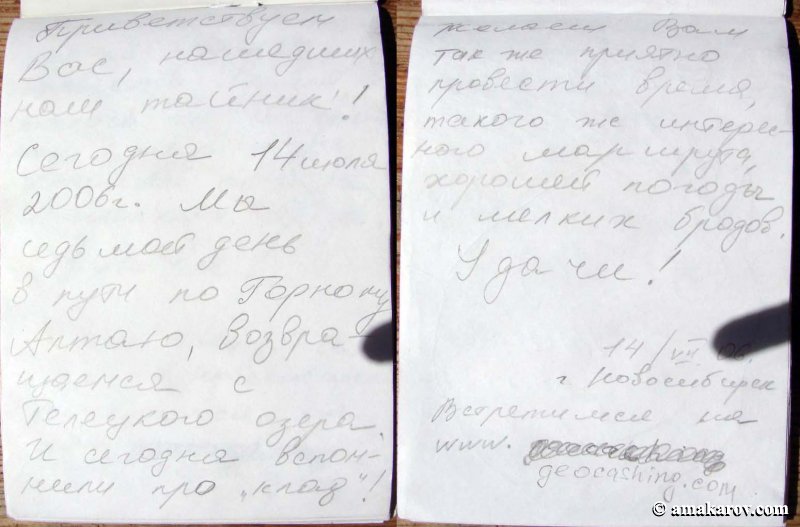 Приветствуем
Вас, нашедших
наш тайник!
Сегодня 14 июля
2006г. Мы
седьмой день
в пути по Горному
Алтаю, возвра-
щаемся с
Телецкого озера.
И сегодня вспом-
нили про „клад"!
желаем Вам
так же приятно
провести время,
такого же интерес-
ного маршрута,
хорошей погоды
и мелких бродов.
Удачи!
14/VII 06.
г. Новосибирск
Встретимся на
www.
geocashing.com
© amakarov.com